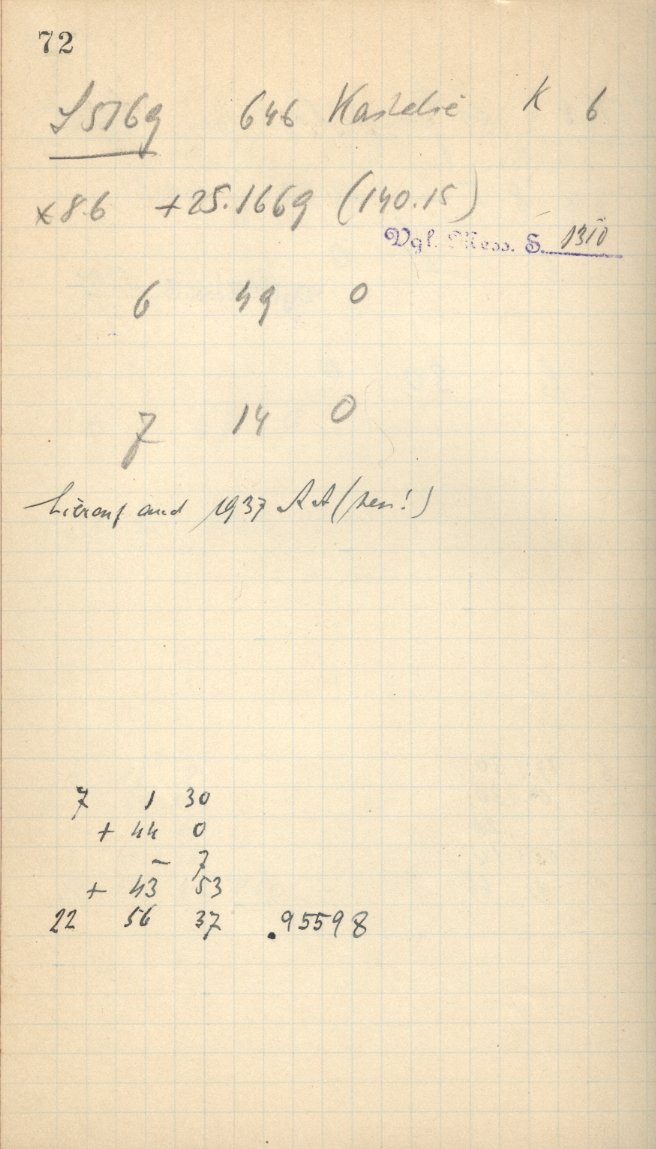 72
S5769 646 K 6
×8.6 +25.1669 (140.15)
Vgl. Mess. S. 1310
6 49 0
7 14 0
hierauf auch 1937 AA
7 1 30
+ 44 0
- 7
+ 43 53
22 56 37 .95598